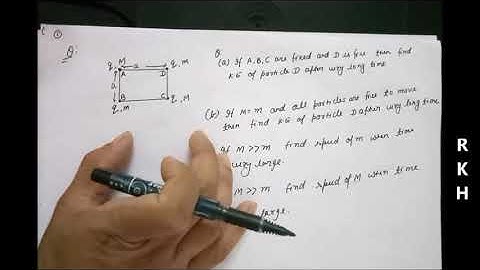 ①
Q.
q, M
a
q, m
A
D
a
B
C
q, m
q, M
Q.
(a) If A, B, C are fixed and D is free then find
K.E of particle D after very long time
(b) If M = m and all particles are free to move
then find K.E of particle D after very long time
If M >> m find speed of m when time
very large.
M >> m find speed of M when time
large.
R
K
H